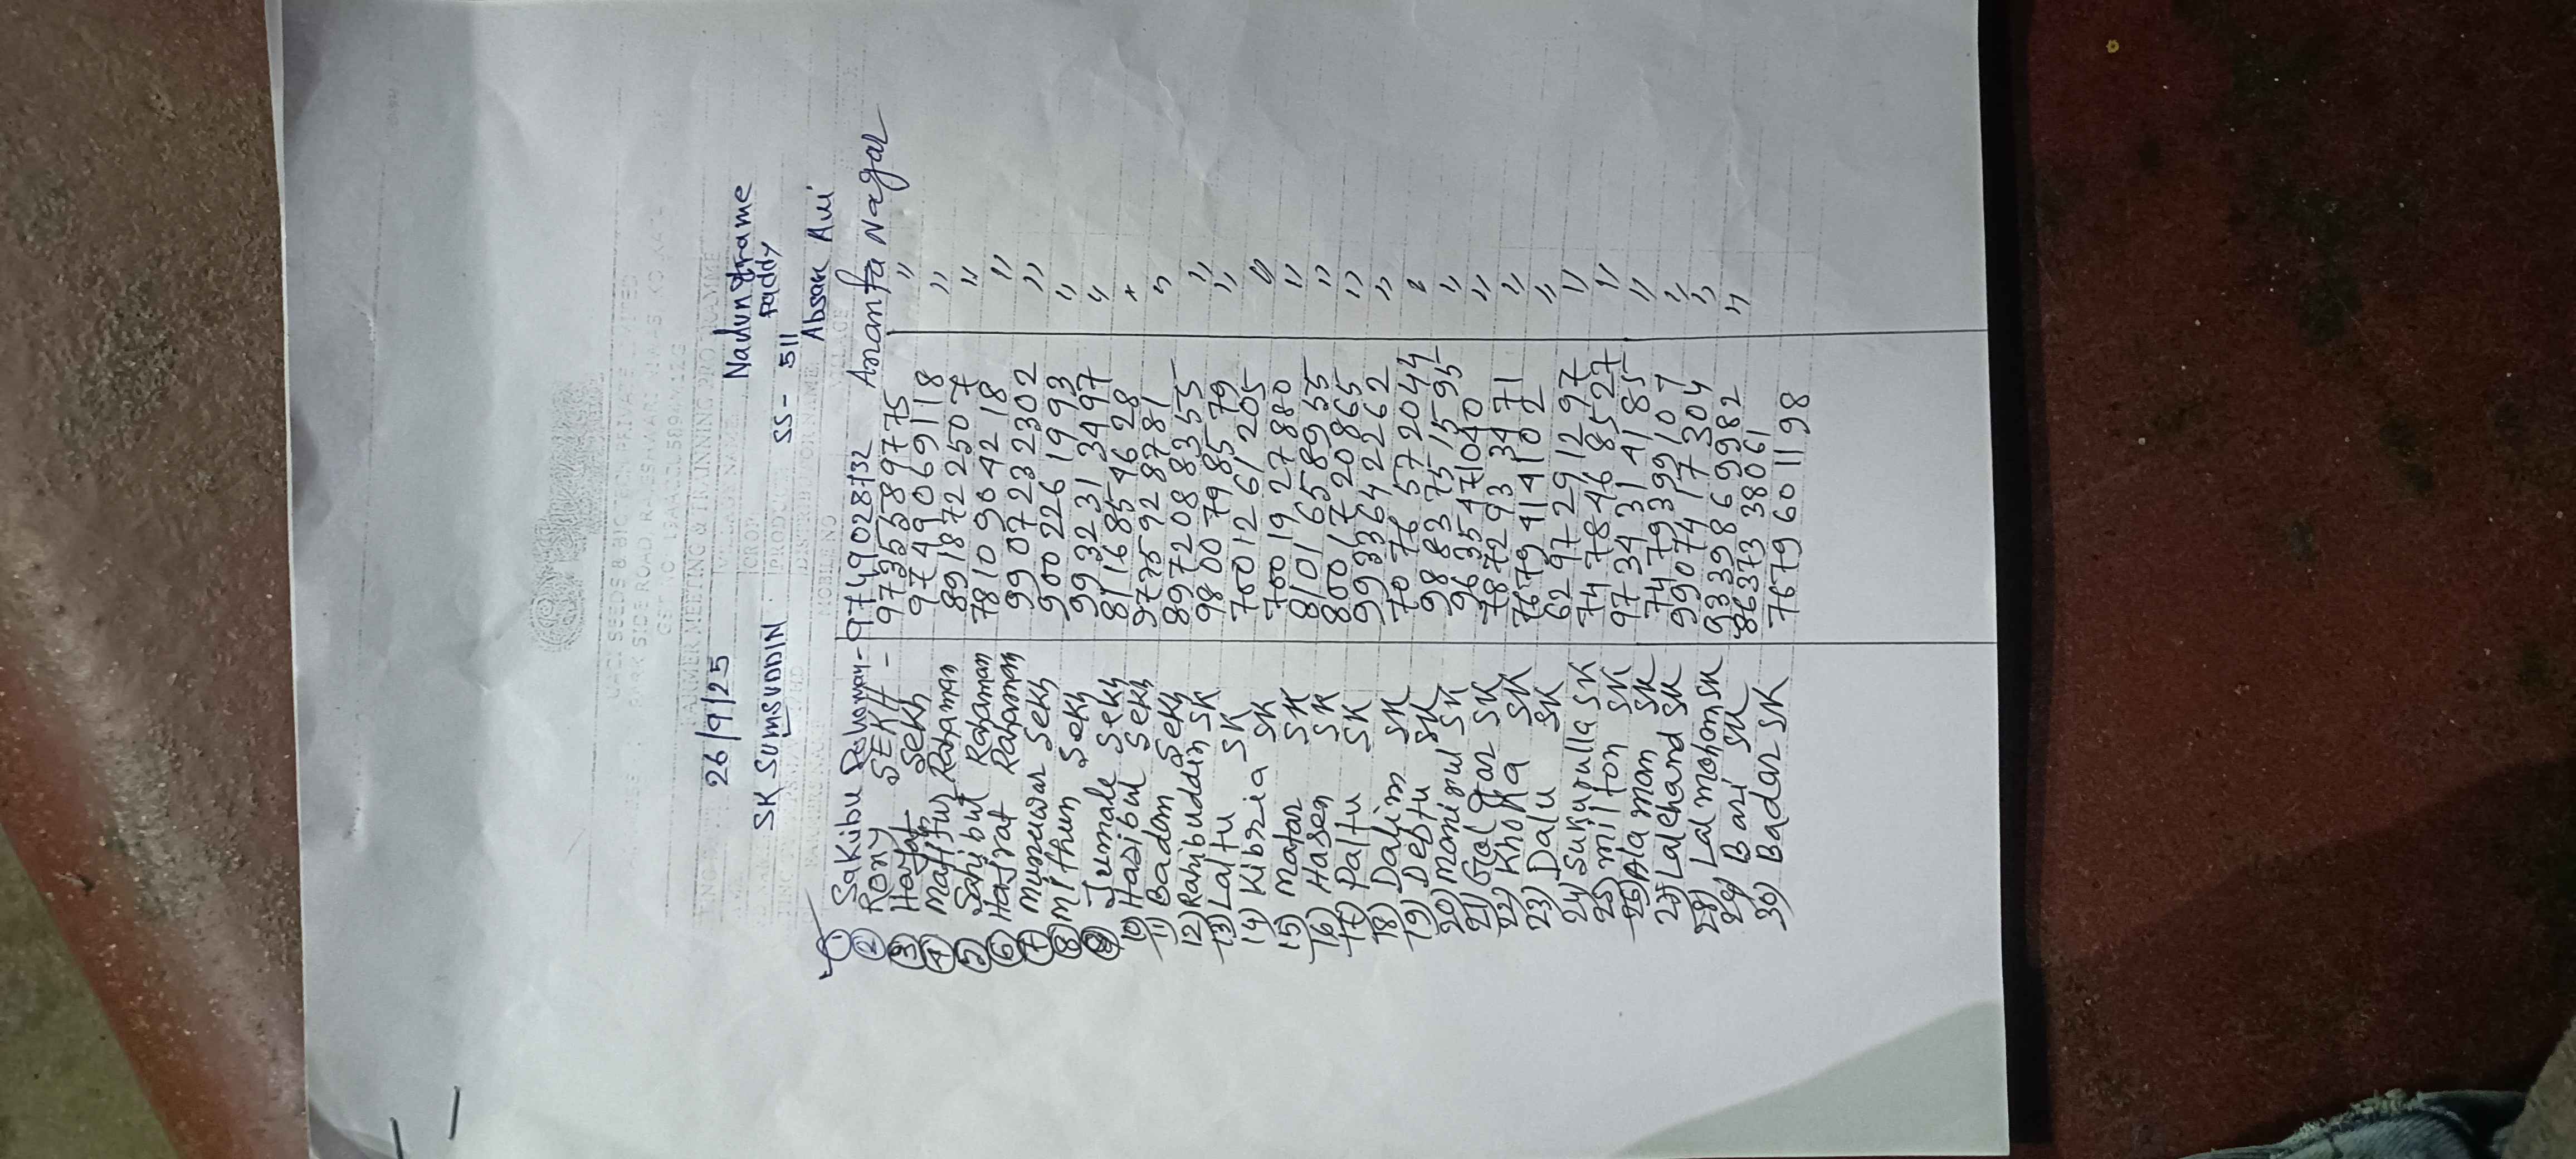 FARMER MEETING & TRAINING PROGRAMME
26/9/25
CROP
Paddy
SK SUMSUDDIN
PRODUCT
SS - 511
Absar Ali
MOBILE NO
VILLAGE
① Sakibu - 9749028732 Ananta Nagar
② Rony SEKH - 9735589775 "
③ Sekh 9749069118 "
④ Mafijur Rahaman 8918722507 "
⑤ Sahibul Rahaman 7810904218 "
⑥ Hajrat Rahaman 9907232302 "
⑦ Munuwar Sekh 9002261993 "
⑧ Mithun Sekh 9932313497 "
Jumale Sekh 8116854628 "
10) Hasibul Sekh 9775928781 "
11) Badam Sekh 8972088355 "
12) Rahibuddin SK 9800798579 "
13) Laltu SK 7001261205 "
14) Kibria SK 7001927880 "
15) Matar SK 8101658955 "
16) Hasen SK 8001720865 "
17) Paltu SK 9933642262 "
18) Dalim SK 7076572044 "
19) Debtu SK 9883751595 "
20) Monirul SK 9635471040 "
21) Golgar SK 7872933471 "
22) Khoka SK 7679414102 "
23) Dalu SK 6297291297 "
24) Sururulla SK 7478468527 "
25) milton SK 9734314185 "
26) Alamom SK 7479399107 "
27) Lalchand SK 9907417304 "
28) Lal mohom SK 9339869982 "
29) Bari SK 8637338061
30) Badar SK 7679601198